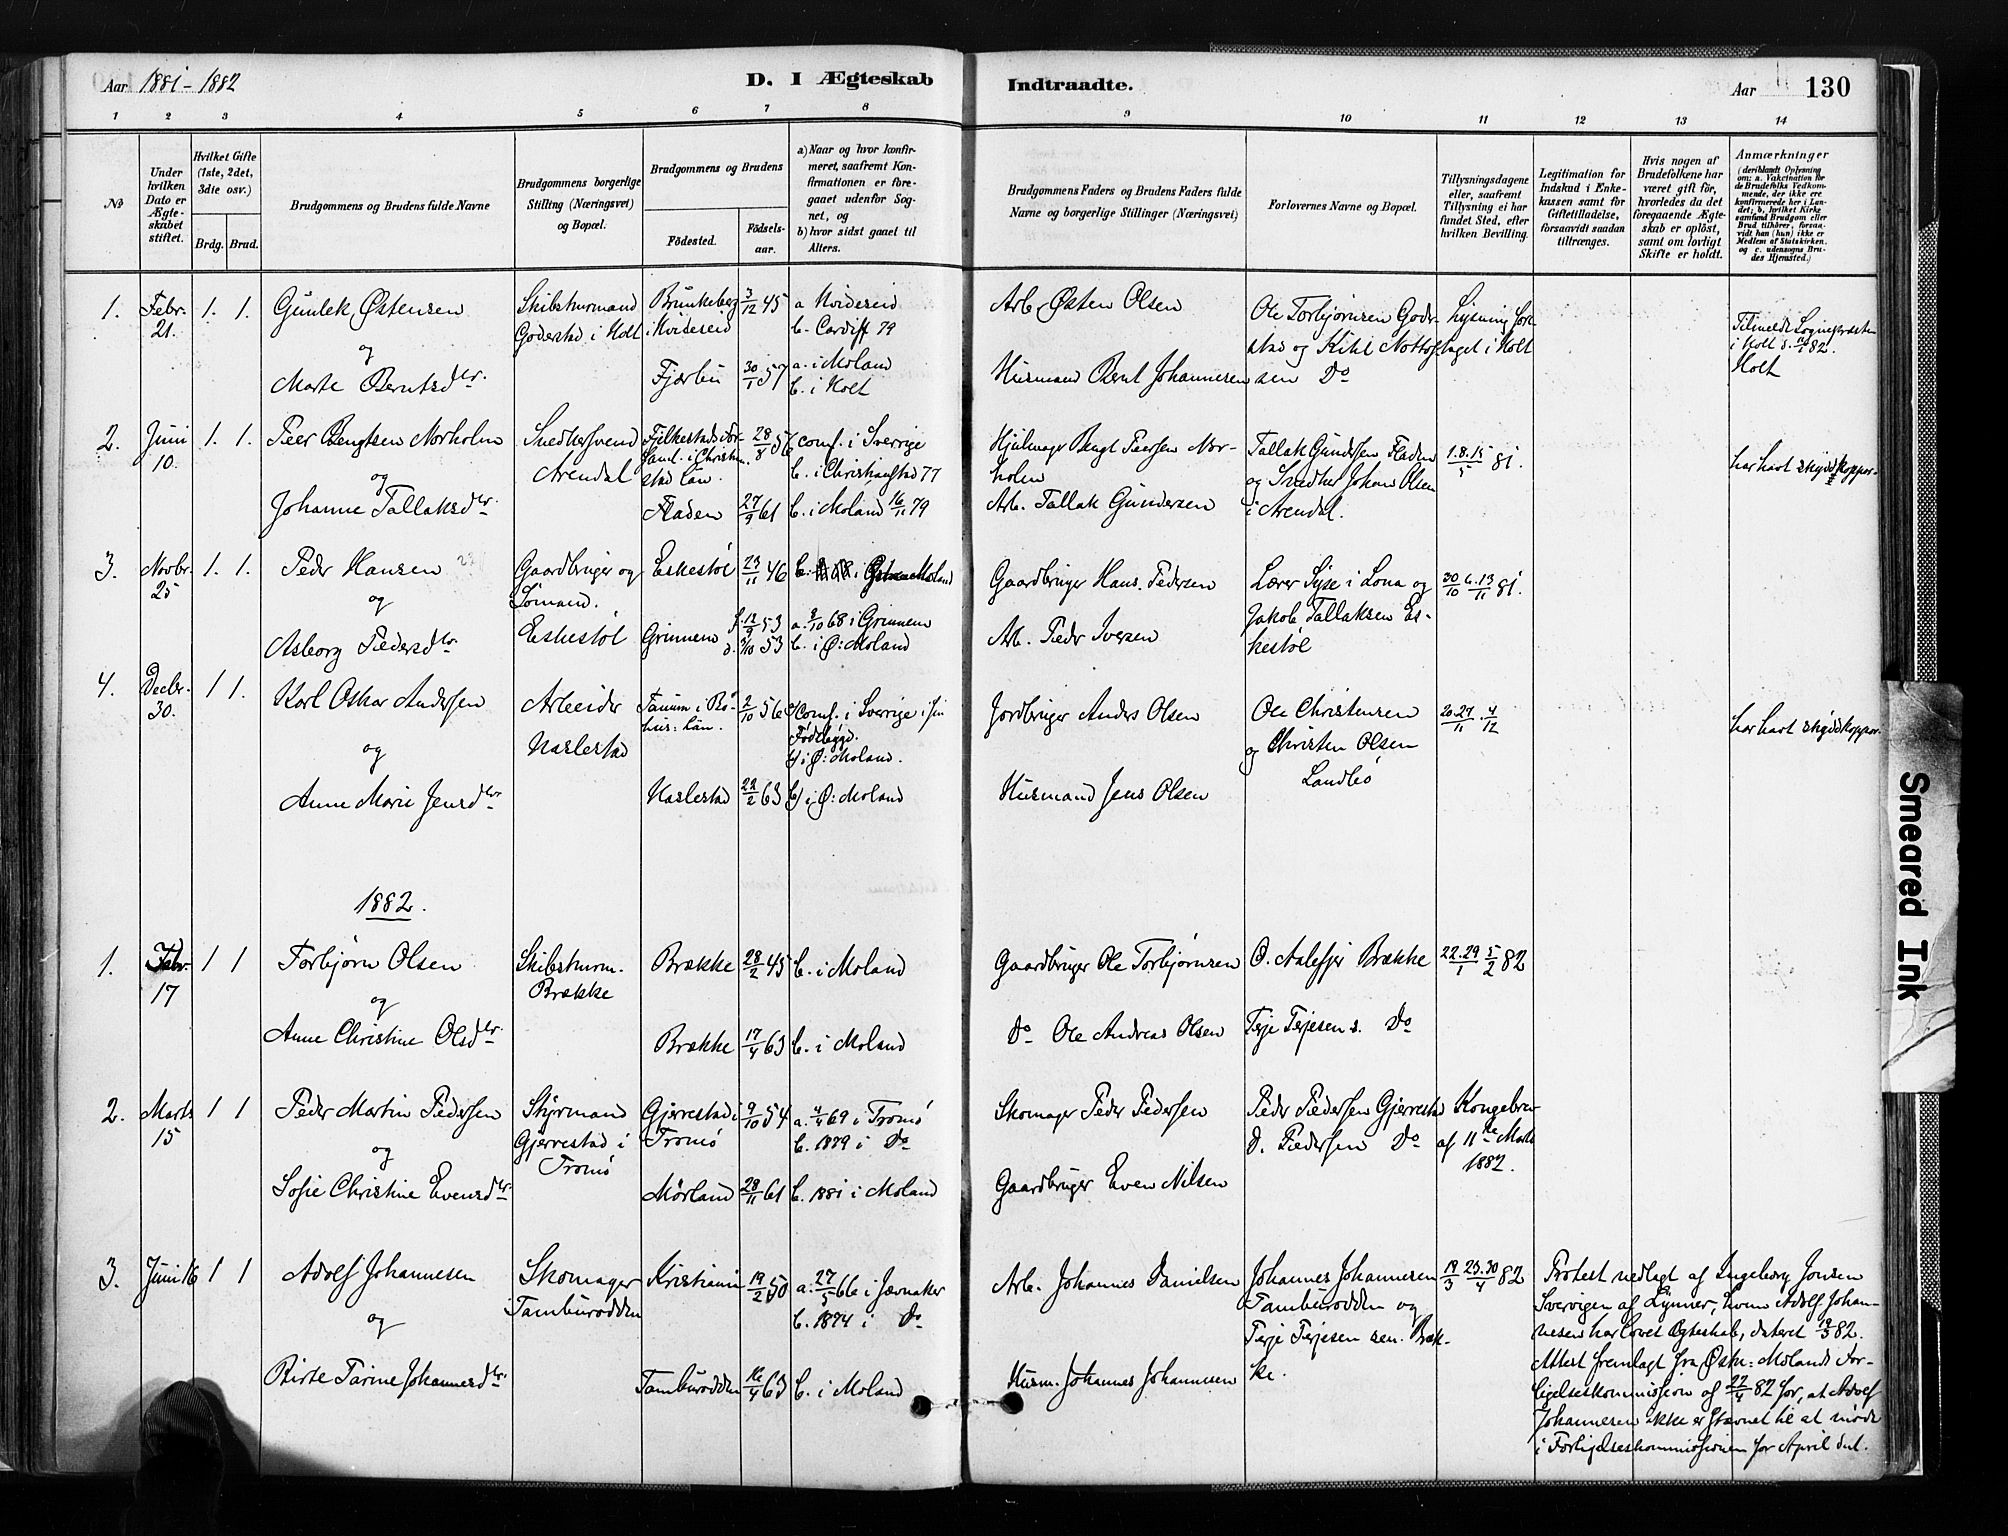 Aar 1881-1882
D. I Ægteskab
Indtraadte.
Aar
130
1 2 3 4 5 6 7 8 9 10 11 12 13 14
No
Under hvilken Dato er Ægteskabet stiftet.
Hvilket Gifte (1ste, 2det, 3die osv.)
Brdg. Brud.
Brudgommens og Brudens fulde Navne
Brudgommens borgerlige Stilling (Næringsvei) og Bopæl.
Brudgommens og Brudens
Födested.
Födsels-aar.
a) Naar og hvor konfirmeret, saafremt Konfirmationen er foregaaet udenfor Sognet, og
b) hvor sidst gaaet til Alters.
Brudgommens Faders og Brudens Faders fulde Navne og borgerlige Stillinger (Næringsvei)
Forlovernes Navne og Bopæl.
Tillysningsdagene eller, saafremt Tillysning ei har fundet Sted, efter hvilken Bevilling.
Legitimation for Indskud i Enkekassen samt for Giftetilladelse, forsaavidt saadan tiltrænges.
Hvis nogen af Brudefolkene har været gift för, hvorledes da det foregaaende Ægteskab er oplöst, samt om lovligt Skifte er holdt.
Anmærkninger
(deriblandt Oplysning om: a. Vakcination for de Brudefolks Vedkommende, der ikke ere konfirmerede her i Landet; b. hvilket Kirkesamfund Brudgom eller Brud tilhörer, forsaavidt han (hun) ikke er Medlem af Statskirken, og c. udensogns Brudes Hjemsted.)
1. Febr. 21. 1. 1.
Gunlek Østensen
og
Marte Berntsdtr.
Skibstürmand
Goderstad i Holt
Brunkeberg
i Kvideseid
3/12 45
a Kvideseid
b. Cardiff 79
Fjærbu 30/1 57
a. i Moland
b. i Holt
Arb. Østen Olsen
Husmand Bernt Johannesen
Ole Torbjørnsen Goder-
stad og Kitil Nottof-
sen Do
Lysning fore-
taget i Holt
Tilmeldt Sognepræsten
i Holt
Holt
2. Juni 10. 1. 1.
Peer Bengtsen Norholm
og
Johanne Tallaksdtr.
Snedkersvend
Arendal
Fjilkestads For-
saml. i Christian-
stad Län.
28/8 56
conf. i Sverrige
b. i Christianstad 77
Fladen 27/9 61
b. i Moland 16/11 79
Hjulmager Bengt Peersen Nor-
holm
Arb. Tallak Gundersen
Tallak Gundersen Fladen
og Snedker Johan Olsen
i Arendal.
1.8.15/5 81.
har havt skyddskoppor.
3. Novbr. 25 1. 1.
Peder Hansen
og
Asborg Pedersdtr.
Gaardbruger og
Sømand.
Eskestøl
Eskestøl 23/11 46
Grinnem f. 12/9 53
d. 2/10 53
a. 4/10 68 i Grinnem
b. i Ø: Moland
Gaardbruger Hans Pedersen
Arb. Peder Iversen
Lærer Syse i Lona og
Jakob Tallaksen Es-
kestøl
30/10 6.13/11 81.
4. Decbr. 30. 1 1.
Karl Oskar Andersen
og
Anne Marie Jensdtr.
Arbeider
Naslestad
Tanum i Bo-
hus: län.
2/10 56
a) Conf. i Sverrige i sin
Fødebygd.
b) i Ø: Moland.
Naslestad 22/2 63
b) i Ø: Moland
Jordbruger Anders Olsen
Husmand Jens Olsen
Ole Christensen
og Christen Olsen
Landbø
20.27/11 . 4/12
har havt skyddskoppor.
1882.
1. Febr. 17 1 1
Torbjørn Olsen
og
Anne Christine Olsdtr.
Skibsturm.
Brække
Brække 28/2 45
b. i Moland
Brække 17/4 63
b. i Moland
Gaardbruger Ole Torbjørnsen
Do Ole Andreas Olsen
O. Aalefjer Brække
Terje Terjesen s. Do
22.29/1 5/2 82
2. Marts 15 1 1
Peder Martin Pedersen
og
Sofie Christine Evensdtr.
Styrmand
Gjerrestad i
Tromø
Gjerrestad i
Tromø
9/10 54
a. 4/4 69 i Tromø
b. 1879 i Do
Mørland 28/11 61
b. 1881 i Moland
Skomager Peder Pedersen
Gaardbruger Even Nilsen
Peder Pedersen Gjerrestad
D. Pedersen Do
Kongebrev
af 11te Marts
1882.
3. Juni 16 1 1
Adolf Johannesen
og
Birte Tarine Johannesdtr.
Skomager
Tamburodden
Kristiania 19/2 50
a. 27/5 66 i Jævnaker
b. 1874 i Do
Tamburodden 16/4 63
b. i Moland
Arb. Johannes Danielsen
Husm. Johannes Johannesen
Johannes Johannesen
Tamburodden og
Terje Terjesen sen. Bræk-
ke.
19/3 23.30/4 82
Protest nedlagt af Ingeborg Jonsen
Svervigen af Lynner, hvem Adolf Johan-
nesen har lovet Ægteskab, dateret 19/3 82.
Attest fremlagt fra Østre: Molands For-
ligelseskommission af 27/4 82 for, at Adolf
Johannesen ikke er stævnet til at møde
i Forligelseskommissionen for April d.a.
Smeared Ink